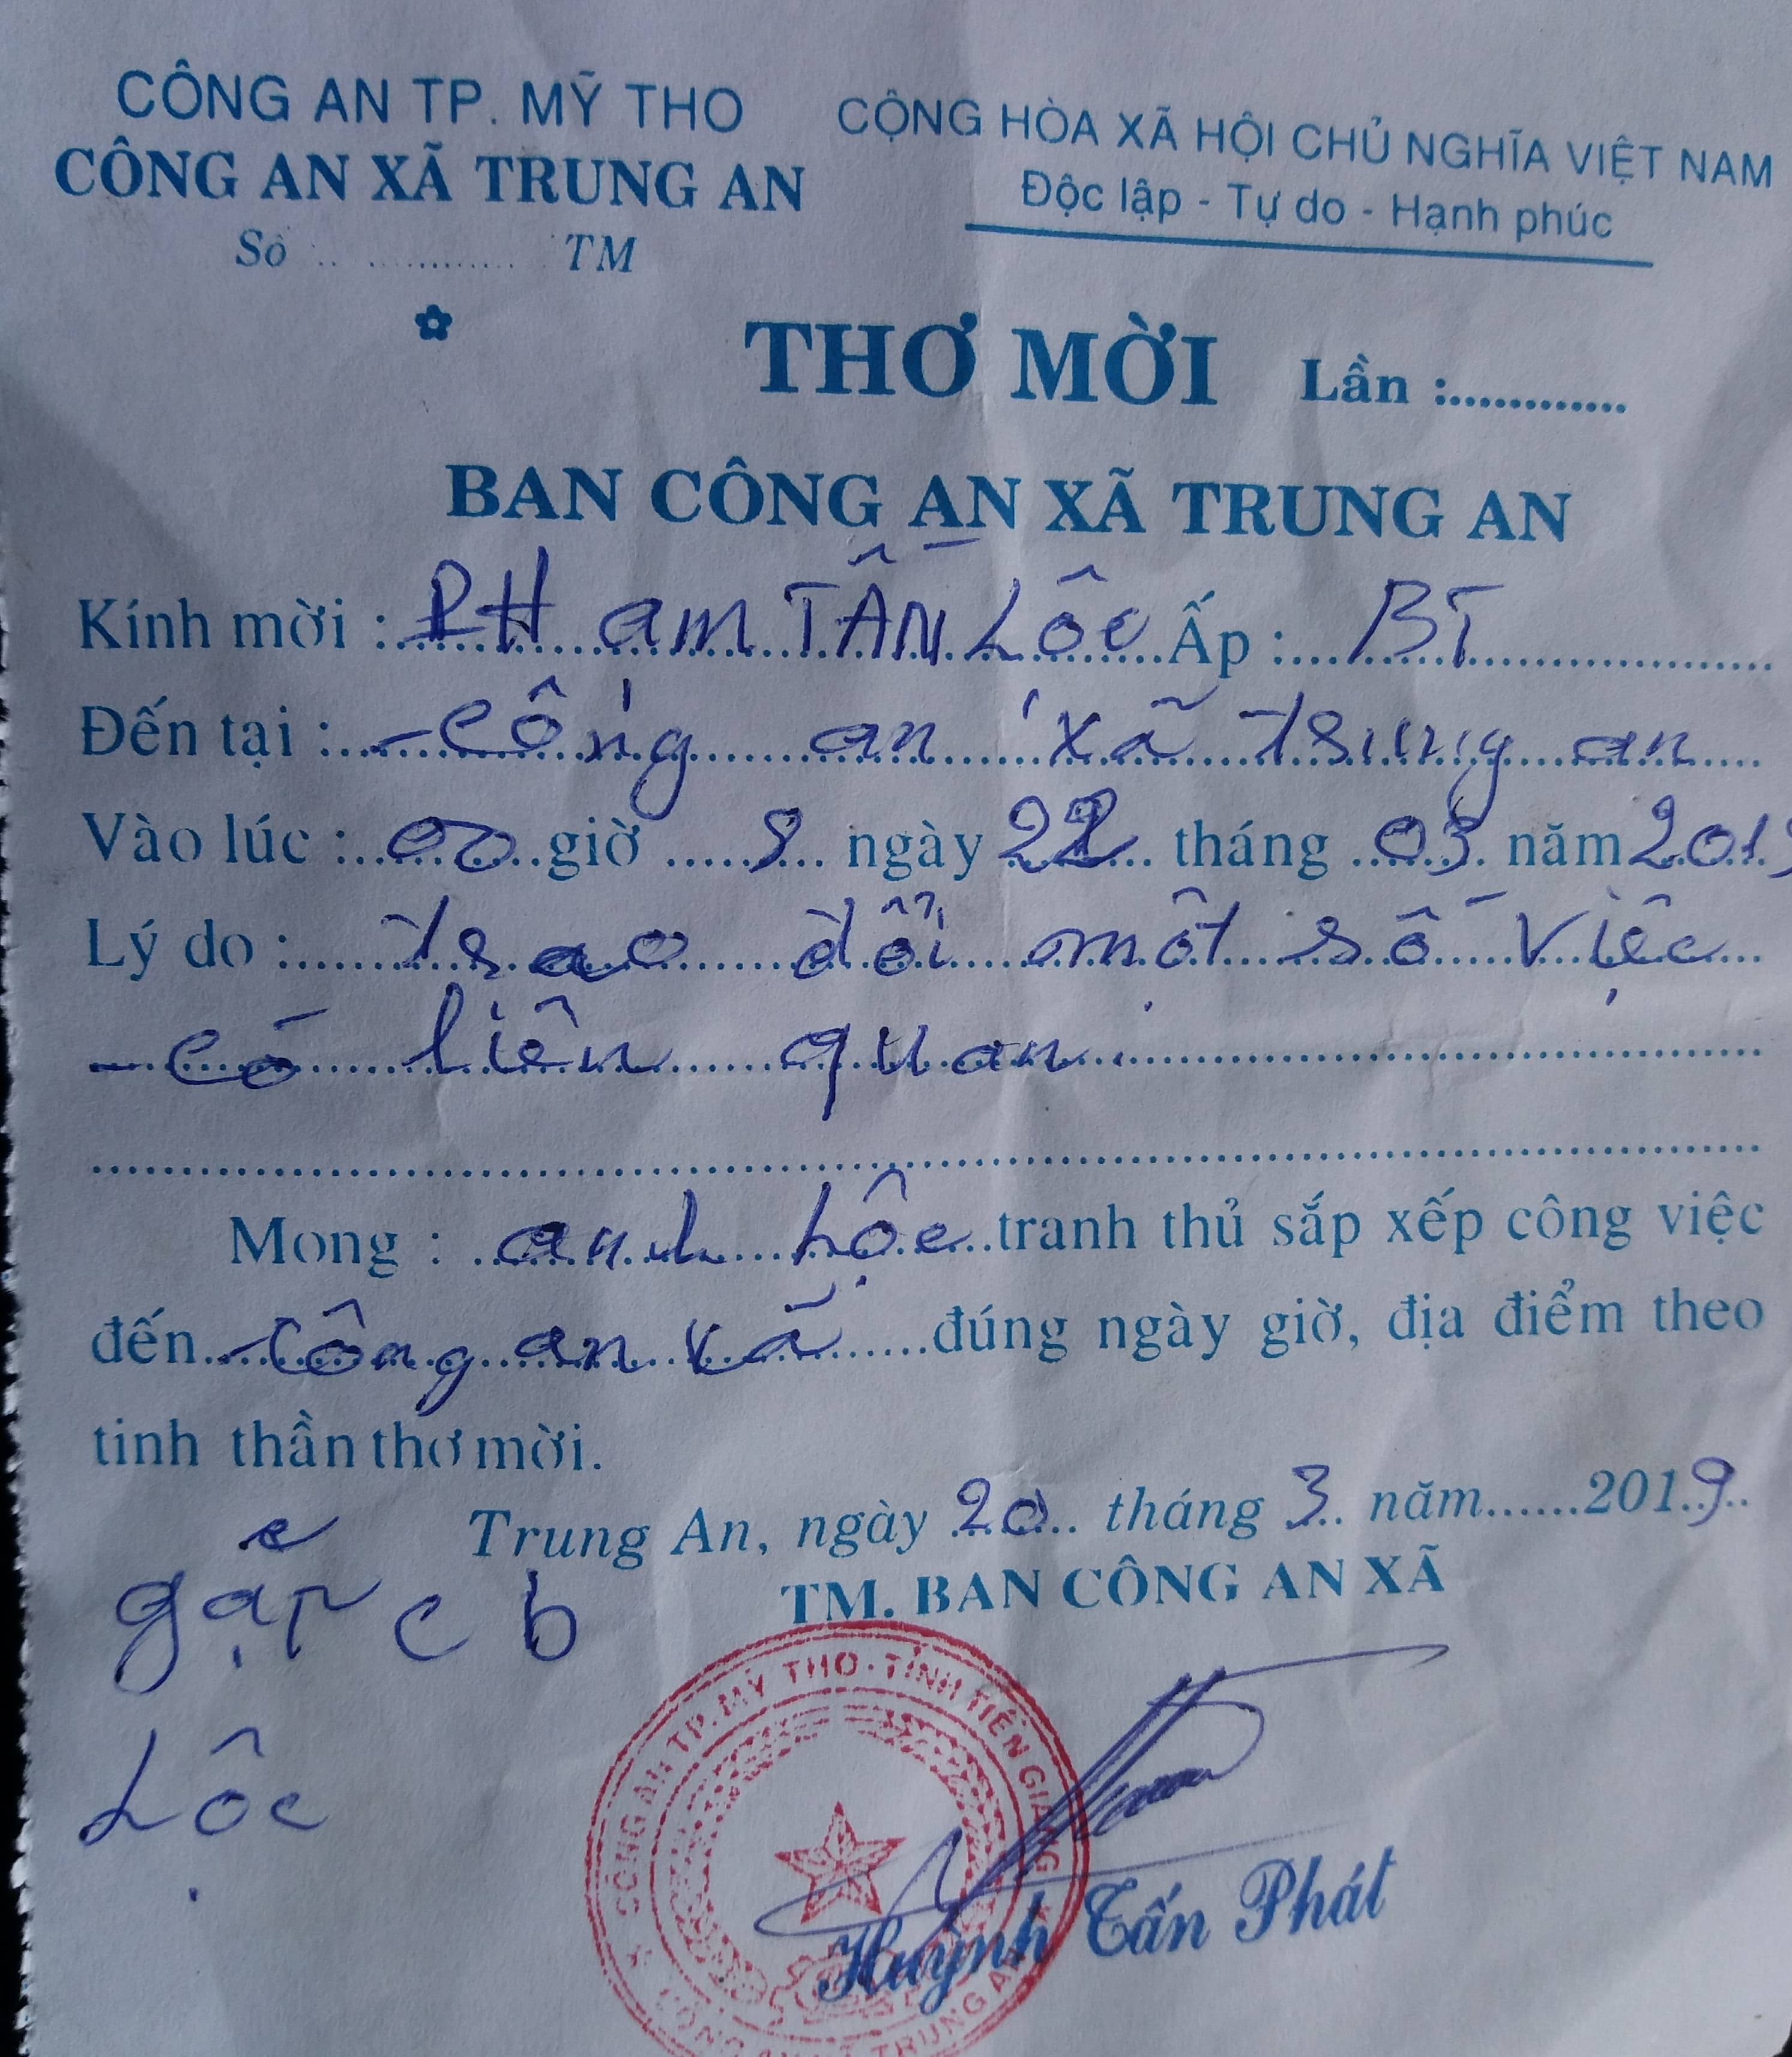 CÔNG AN TP. MỸ THO
CÔNG AN XÃ TRUNG AN
Số .. ............ TM
CỘNG HÒA XÃ HỘI CHỦ NGHĨA VIỆT NAM
Độc lập - Tự do - Hạnh phúc
THƠ MỜI Lần :.............
BAN CÔNG AN XÃ TRUNG AN
Kính mời : PHam TẤN Lôc Ấp : BT
Đến tại : Công an xã trung an
Vào lúc : 00 giờ 8 ngày 22 tháng 03 năm 2019
Lý do : trao đổi một số việc
có liên quan.
Mong : anh Lộc tranh thủ sắp xếp công việc
đến Công an xã đúng ngày giờ, địa điểm theo
tinh thần thơ mời.
Trung An, ngày 20 tháng 3 năm 2019
TM. BAN CÔNG AN XÃ
gặp c b
Lộc
CÔNG AN TP. MỸ THO · TỈNH TIỀN GIANG
CÔNG AN XÃ TRUNG AN
Huỳnh Tấn Phát